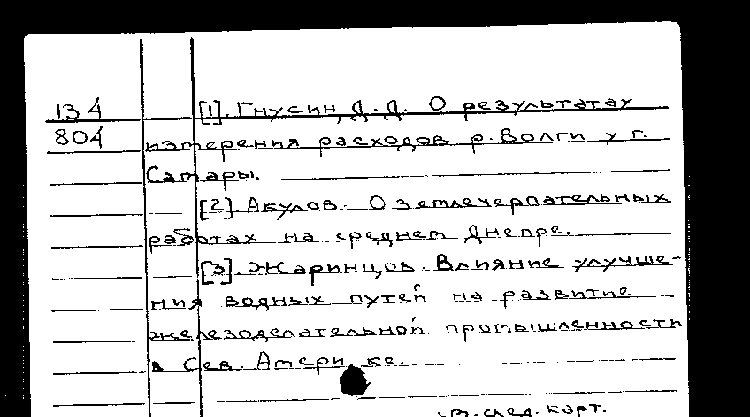 134
804
[1]. Гнусин, Д.Д. О результатах
измерения расходов р. Волги у г.
Самары.
[2]. Акулов. О землечерпательных
работах на среднем Днепре.
[3]. Жаринцов. Влияние улучше-
ния водных путей на развитие
железоделательной промышленности
в Сев. Америке.
см. след. карт.